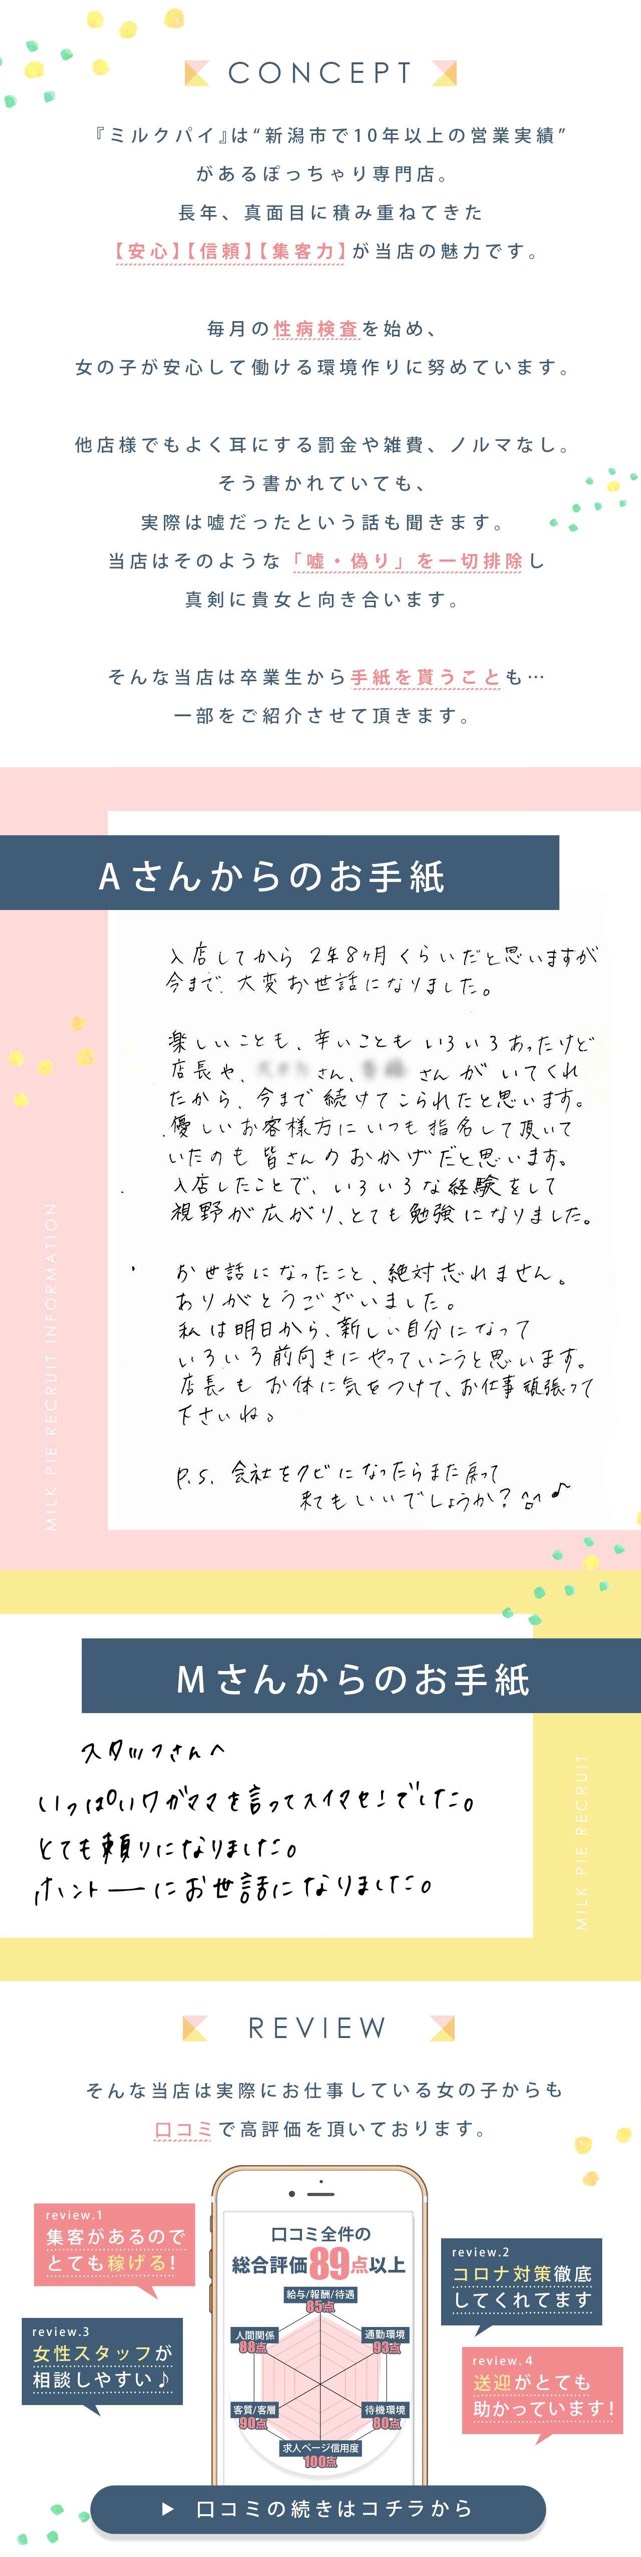 CONCEPT
『ミルクパイ』は“新潟市で10年以上の営業実績”
があるぽっちゃり専門店。
長年、真面目に積み重ねてきた
【安心】【信頼】【集客力】が当店の魅力です。
毎月の性病検査を始め、
女の子が安心して働ける環境作りに努めています。
他店様でもよく耳にする罰金や雑費、ノルマなし。
そう書かれていても、
実際は嘘だったという話も聞きます。
当店はそのような「嘘・偽り」を一切排除し
真剣に貴女と向き合います。
そんな当店は卒業生から手紙を貰うことも…
一部をご紹介させて頂きます。
Aさんからのお手紙
入店してから 2年8ヶ月くらいだと思いますが
今まで、大変お世話になりました。
楽しいことも、辛いこともいろいろあったけど
店長や、さん、さんがいてくれ
たから、今まで続けてこられたと思います。
優しいお客様方にいつも指名して頂いて
いたのも皆さんのおかげだと思います。
入店したことで、いろいろな経験をして
視野が広がり、とても勉強になりました。
お世話になったこと、絶対忘れません。
ありがとうございました。
私は明日から、新しい自分になって
いろいろ前向きにやっていこうと思います。
店長もお体に気をつけて、お仕事頑張って
下さいね。
P.S. 会社をクビになったらまた戻って
来てもいいでしょうか?^^♪
MILK PIE RECRUIT INFORMATION
Mさんからのお手紙
スタッフさんへ
いっぱいワガママを言ってスイマセンでした。
とても頼りになりました。
ホントーにお世話になりました。
MILK PIE RECRUIT
REVIEW
そんな当店は実際にお仕事している女の子からも
口コミで高評価を頂いております。
review.1
集客があるので
とても稼げる!
review.2
コロナ対策徹底
してくれてます
review.3
女性スタッフが
相談しやすい♪
review.4
送迎がとても
助かっています!
口コミ全件の
総合評価89点以上
給与/報酬/待遇
85点
人間関係
86点
通勤環境
93点
客質/客層
90点
待機環境
80点
求人ページ信用度
100点
▶ 口コミの続きはコチラから